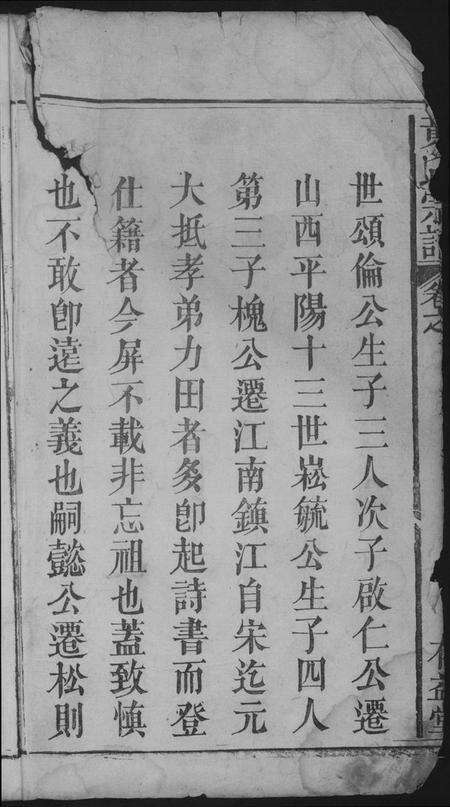 黃氏宗譜 卷之
世頌倫公生子三人次子啟仁公遷
山西平陽十三世崧毓公生子四人
第三子槐公遷江南鎮江自宋迄元
大抵孝弟力田者多卽起詩書而登
仕籍者今屏不載非忘祖也蓋致慎
也不敢卽遠之義也嗣懿公遷松則